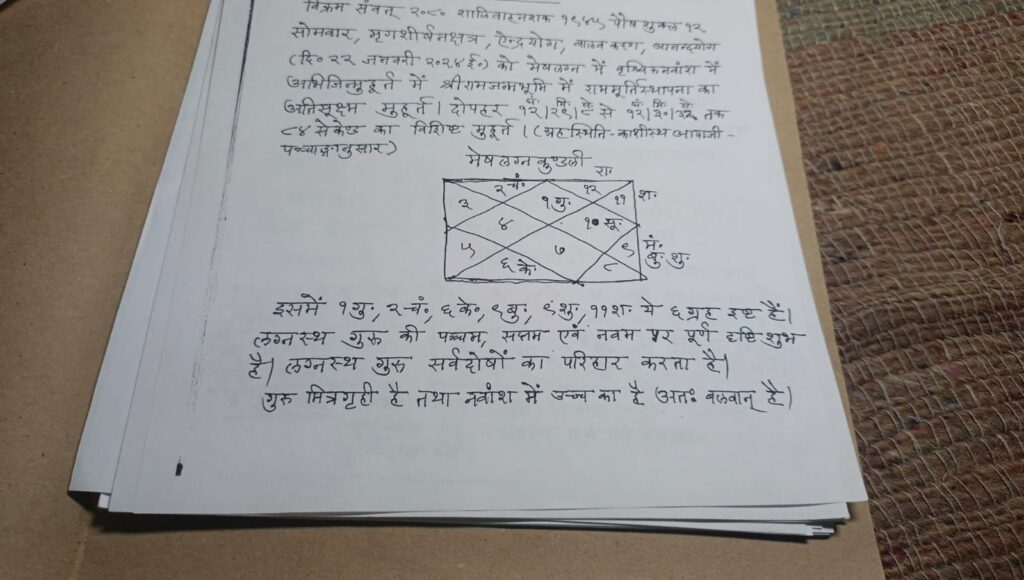 विक्रम संवत् २०८० शालिवाहनशक १९४५ पौष शुक्ल १२
सोमवार, मृगशीर्षनक्षत्र, ऐन्द्रयोग, बालवकरण, आनन्दयोग
(दि० २२ जनवरी २०२४ ई०) को मेषलग्न में वृश्चिकनवांश में
अभिजिन्मुहूर्त में श्रीरामजन्मभूमि में राममूर्तिस्थापना का
अतिसूक्ष्म मुहूर्त। दोपहर १२।२९।८ से १२।३०।३२ तक
८४ सेकेण्ड का विशिष्ट मुहूर्त। (ग्रहस्थिति-काशीस्थ बापाजी-
पञ्चाङ्गानुसार)
मेष लग्न कुण्डली
रा॰
२ चं॰ १२
३ १ गु॰ ११ श॰
४ १० सू॰
५ ७ ९ मं॰
८ बु॰ शु॰
६ के॰
इसमें १गु॰, २चं॰, ६के॰, ९बु॰, ९शु॰, ११श॰ ये ६ ग्रह इष्ट हैं।
लग्नस्थ गुरु की पञ्चम, सप्तम एवं नवम पर पूर्ण दृष्टि शुभ
है। लग्नस्थ गुरु सर्वदोषों का परिहार करता है।
गुरु मित्रगृही है तथा नवांश में उच्च का है अतः बलवान् है।